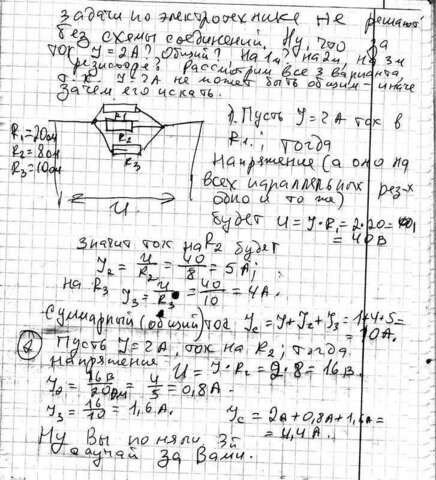 задачи по электротехнике не решают
без схемы соединений. Ну, что за
ток J=2A? Общий? На 1м? на 2м, на 3м
резисторе? Рассмотрим все 3 варианта,
т.к. J=2A не может быть общим - иначе
зачем его искать.
R1
R2
R3
R1=20ом
R2=8ом
R3=10ом
U
1) Пусть J=2A ток в
R1; тогда
напряжение (а оно на
всех параллельных рез-х
одно и то же)
будет U=J·R1=2·20=
=40В
значит ток на R2 будет
J2=U/R2=40/8=5A;
на R3 J3=U/R3=40/10=4A.
Суммарный (общий) ток Jc=J+J2+J3=1+4+5=
=10A.
2 Пусть J=2A, ток на R2; тогда
напряжение U=J·R2=2·8=16В.
J2=16В/20ом=4/5=0,8A.
J3=16/10=1,6A. Jc=2A+0,8A+1,6A=
=4,4A.
Ну Вы поняли 3й
случай за Вами.